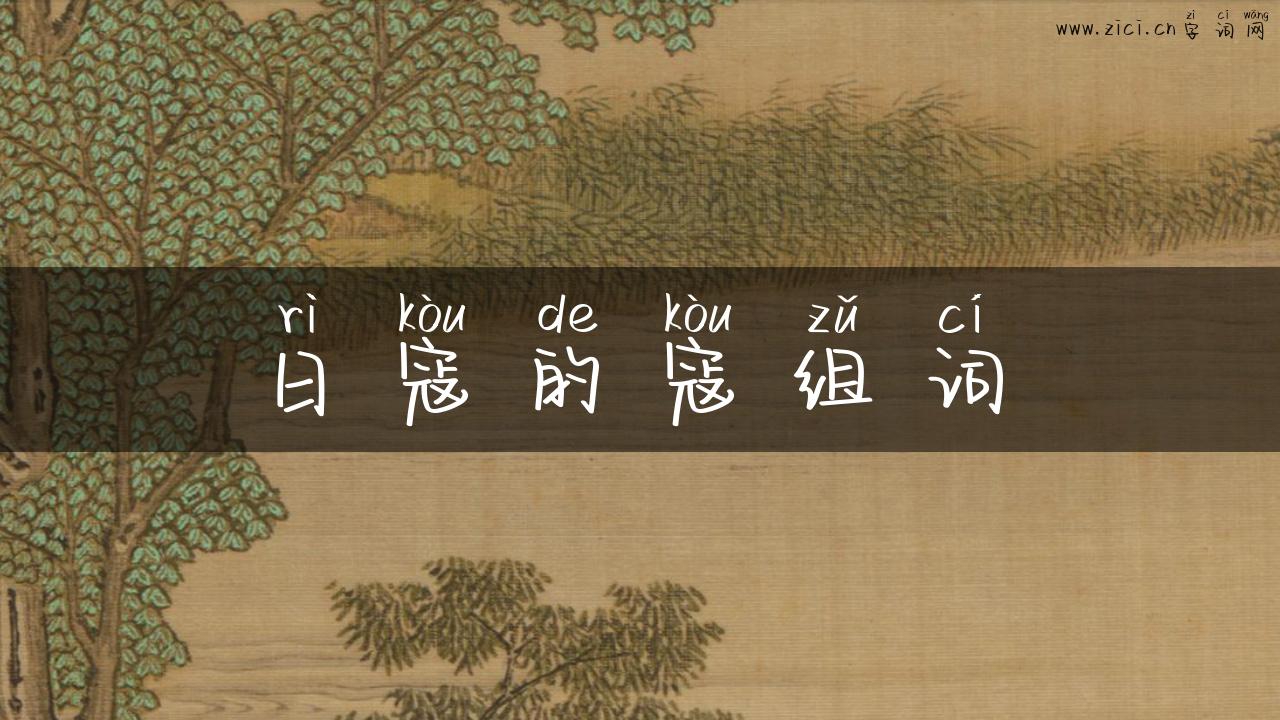 zì cí wǎng
www.zici.cn字词网
rì kòu de kòu zǔ cí
日寇的寇组词